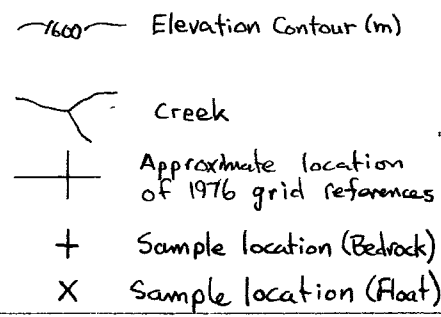 1600 Elevation Contour (m)
Creek
Approximate location
of 1976 grid references
+ Sample location (Bedrock)
X Sample location (Float)